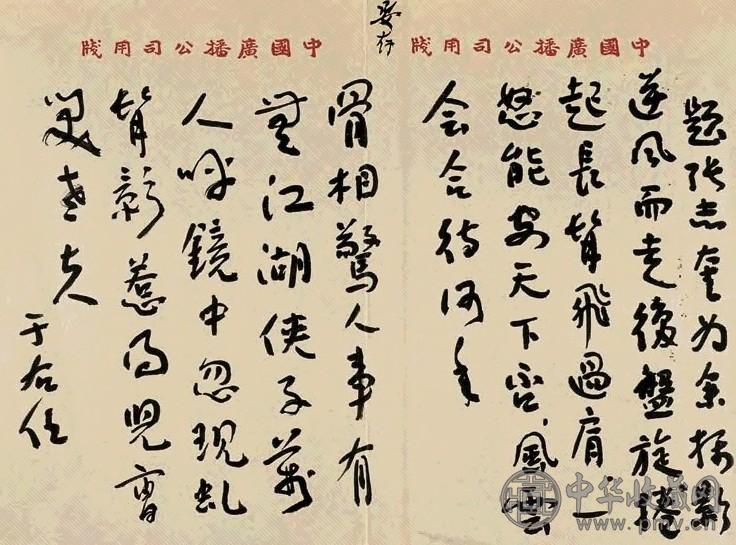 中國廣播公司用牋
中國廣播公司用牋
要存
題張志奎为余攝影
逆風而走復盤旋捲
起長髯飛過肩一
怒能安天下否風雲
会合待何年
骨相驚人事有
無江湖俠子萬
人呼鏡中忽現虬
髯影惹得兒曹
笑老夫
于右任
中华收藏网
www.pmv.cn